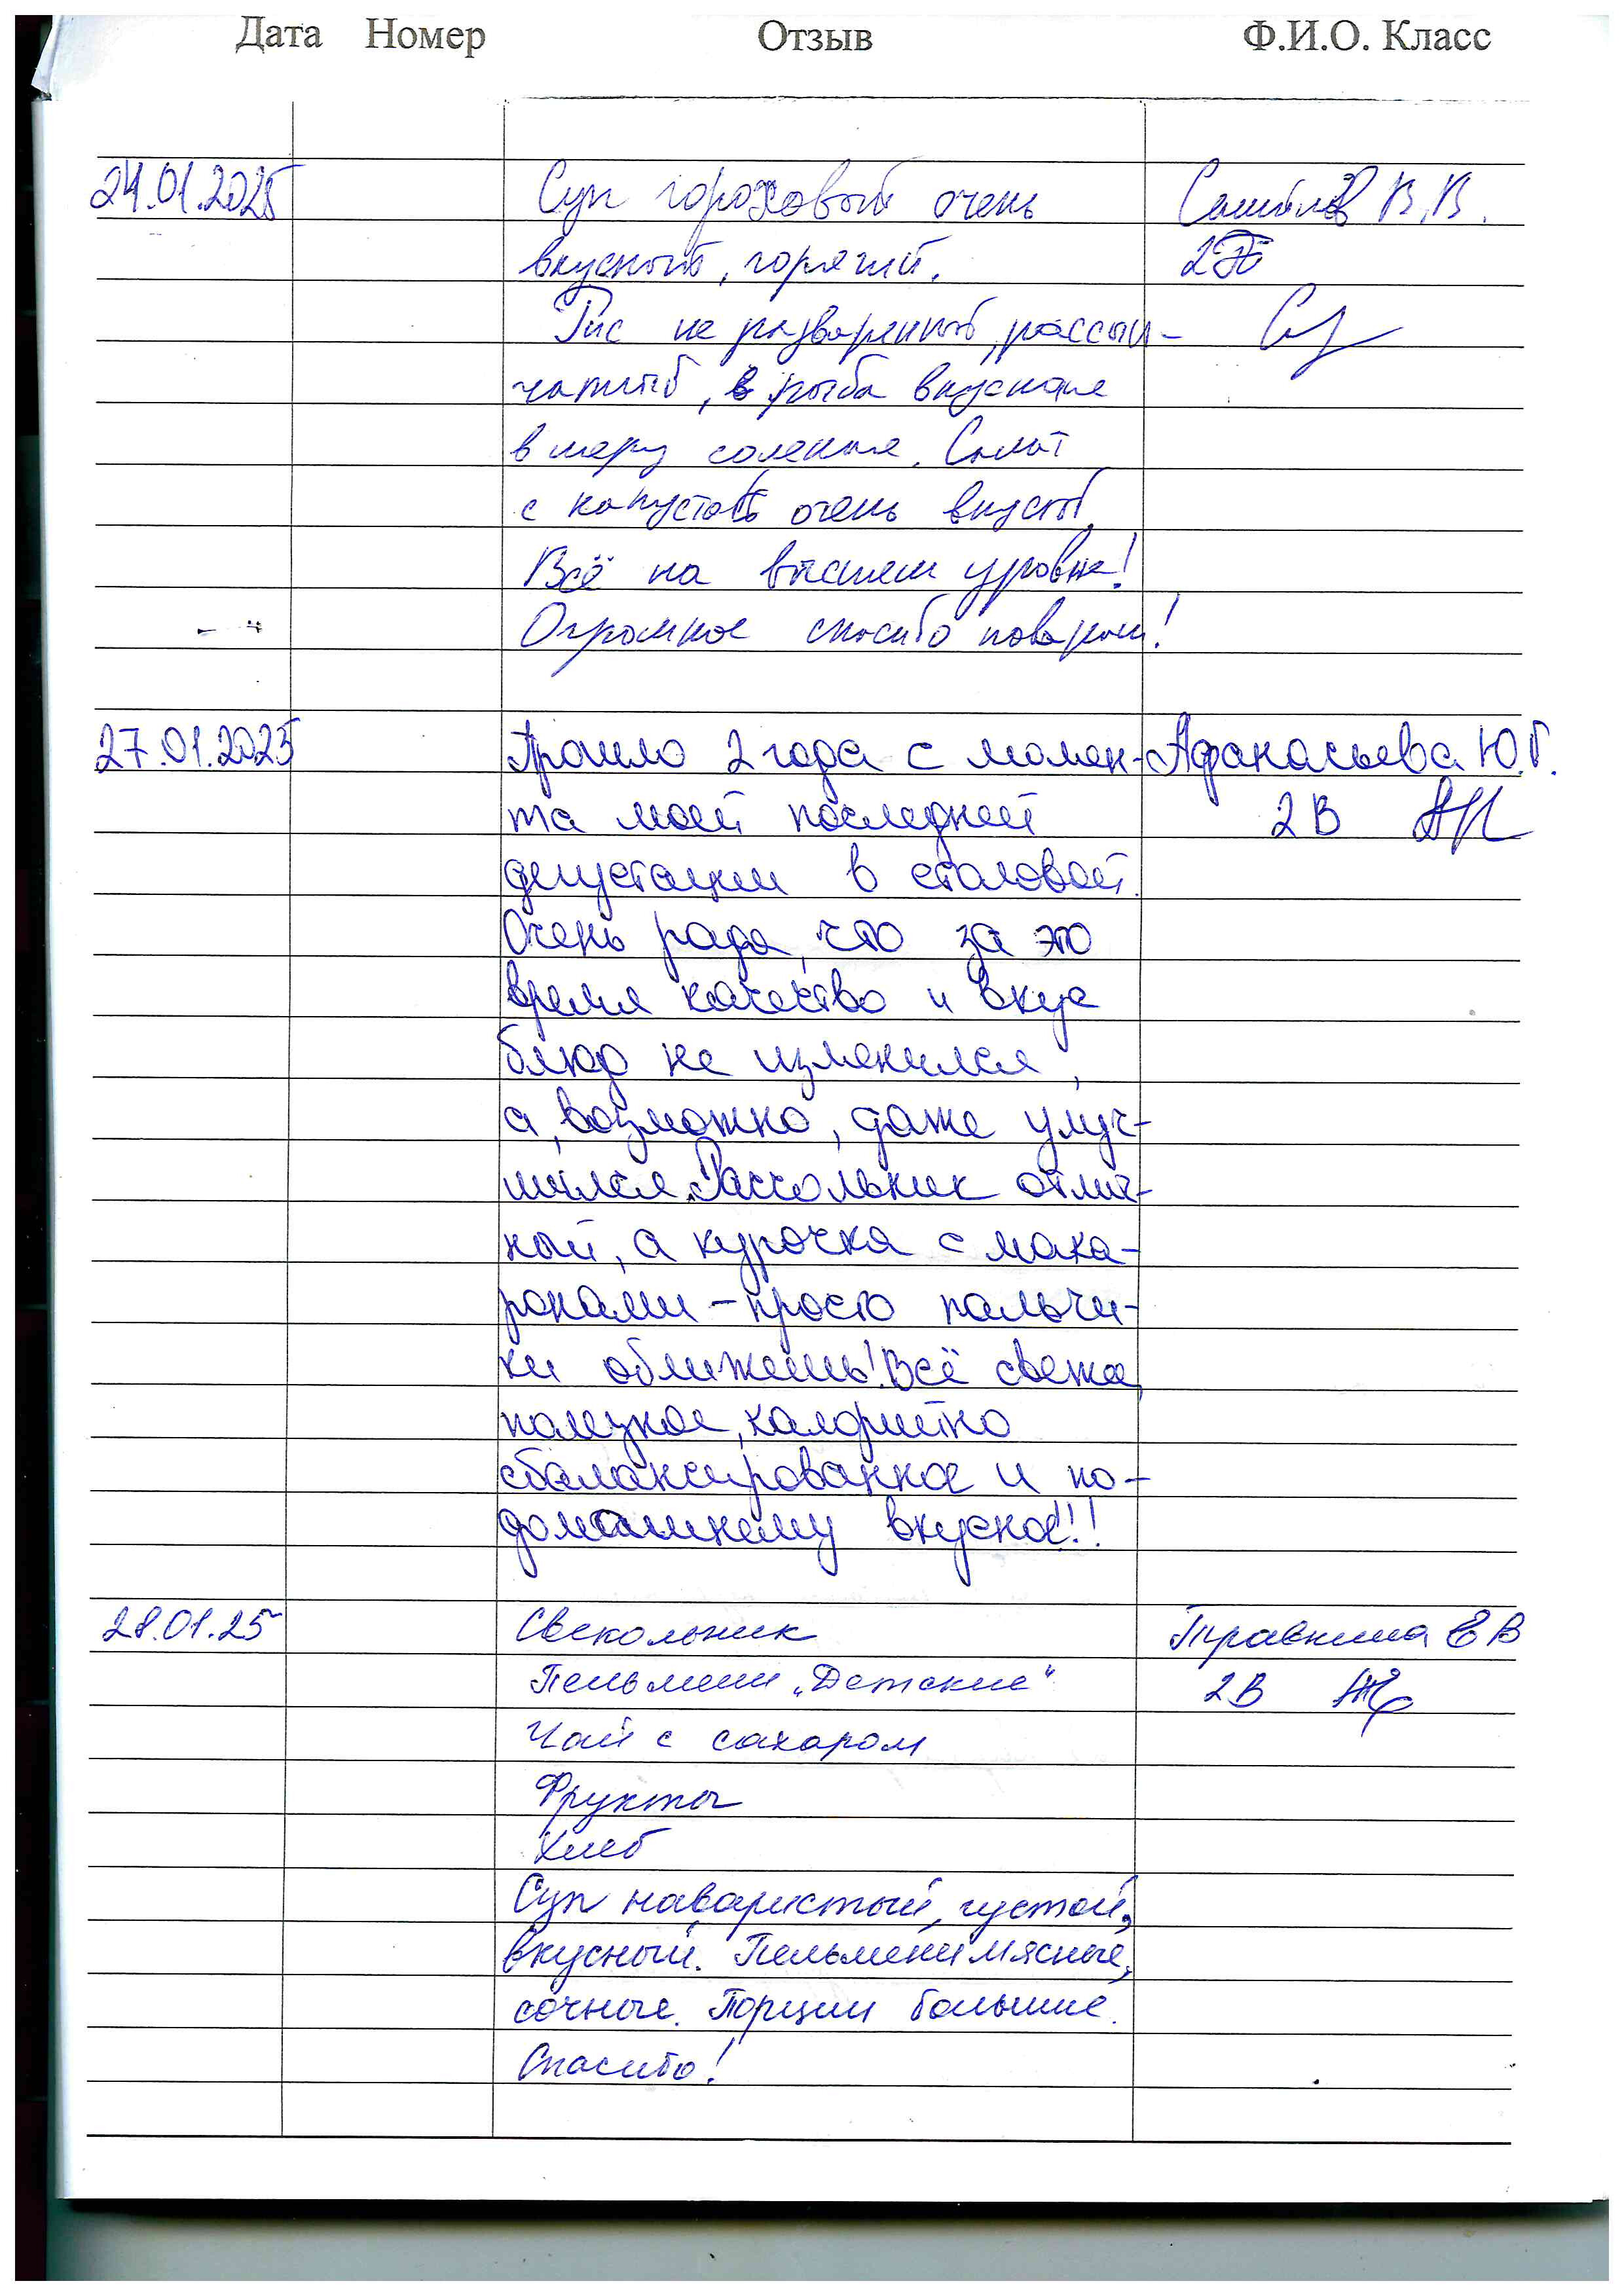 Дата Номер Отзыв Ф.И.О. Класс
24.01.2025 Суп гороховый очень В.В.
вкусный, горячий. 2
Рис не разваренный, рассып-
чатый, рыба вкусная
в меру соленая. Салат
с капустой очень вкусный.
Всё на высшем уровне!
Огромное спасибо поварам!
27.01.2025 Прошло 2 года с момен- Афанасьева Ю.Г.
та моей последней 2В
дегустации в столовой.
Очень рада, что за это
время качество и вкус
блюд не изменился,
а, возможно, даже улуч-
шился. Рассольник отлич-
ный, а курочка с мака-
ронами - просто пальчи-
ки оближешь! Всё свежее,
полезное, калорийно
сбалансированное и по-
домашнему вкусное!!!
28.01.25 Свекольник Травкина Е В
Пельмени „Детские“ 2В
Чай с сахаром
Фрукты
Хлеб
Суп наваристый, густой,
вкусный. Пельмени мясные,
сочные. Порции большие.
Спасибо!